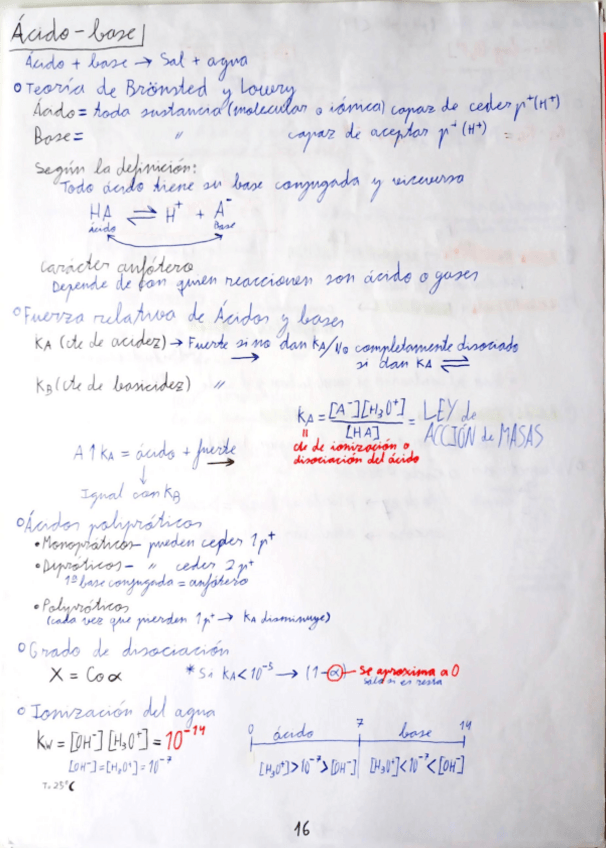 Ácido-base
Ácido + base → Sal + agua
○ Teoría de Brönsted y Lowry
Ácido = toda sustancia (molecular o iónica) capaz de ceder p⁺(H⁺)
Base = " capaz de aceptar p⁺(H⁺) =
Según la definición:
Todo ácido tiene su base conjugada y viceversa
HA ⇌ H⁺ + A⁻
ácido Base
carácter anfótero
Depende de con quien reaccionen son ácido o gases
○ Fuerza relativa de Ácidos y bases
KA (cte de acidez) → Fuerte si no dan KA/ completamente disociado
→ si dan KA ⇌
KB (cte de basicidez) "
KA = [A⁻][H₃O⁺] / [HA] = LEY de ACCIÓN de MASAS
cte de ionización o
disociación del ácido
A ↑ KA = ácido + fuerte
→
↓
Igual con KB
○ Ácidos polipróticos
• Monopróticos – pueden ceder 1p⁺
• Dipróticos – " ceder 2p⁺
1ª base conjugada = anfótero
• Polipróticos
(cada vez que pierden 1p⁺ → KA disminuye)
○ Grado de disociación
X = Co α * Si KA < 10⁻⁵ → (1-α) – se aproxima a 0
sólo si es resta
○ Ionización del agua
Kw = [OH⁻][H₃O⁺] = 10⁻¹⁴
[OH⁻] = [H₃O⁺] = 10⁻⁷
T = 25°C
0 ácido 7 base 14
[H₃O⁺] > 10⁻⁷ > [OH⁻] [H₃O⁺] < 10⁻⁷ < [OH⁻]
16